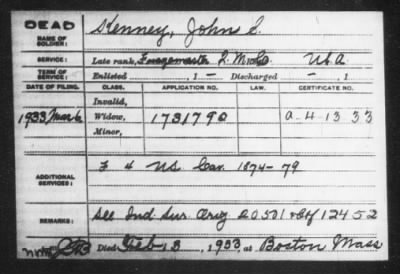 DEAD
NAME OF SOLDIER: Kenney, John S.
SERVICE: Late rank, Foragemaster Q. M. Co. U.S.A.
TERM OF SERVICE: Enlisted , 1 — Discharged — , 1
DATE OF FILING. CLASS. APPLICATION NO. LAW. CERTIFICATE NO.
Invalid,
1933 Mar 6 Widow, 1731790 A-4-13-33
Minor,
ADDITIONAL SERVICES: F 4 US Cav. 1874-79
REMARKS: See Ind. Sur. Orig 20501 ctf 12452
Died Feb 3 , 1933 at Boston Mass